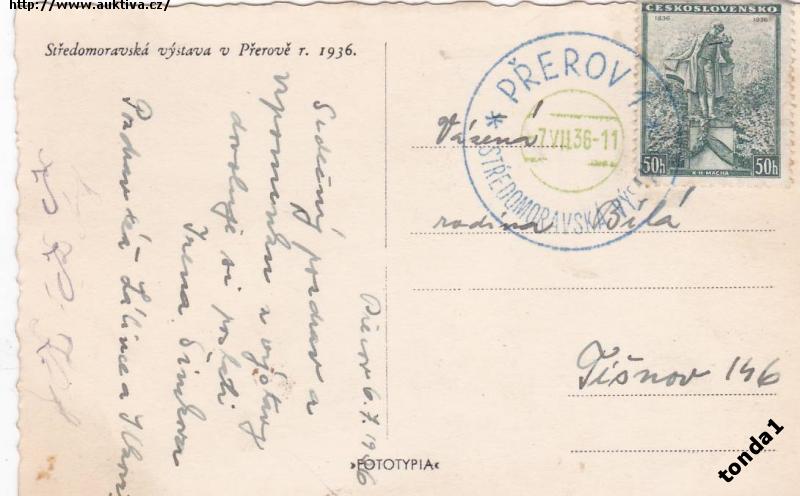 http://www.auktiva.cz/
Středomoravská výstava v Přerově r. 1936.
ČESKOSLOVENSKO
1836 1936
K. H. MÁCHA
50h 50h
* PŘEROV 1 *
7.VII.36-11
STŘEDOMORAVSKÁ VÝS
Vážená
rodina Bílá
Tišnov 146
Přerov 6.7.1936
Srdečný pozdrav a
vzpomínku z výstavy
dovoluje si poslati
Irena Šimkova
Pozdravuje
»FOTOTYPIA«
tonda1